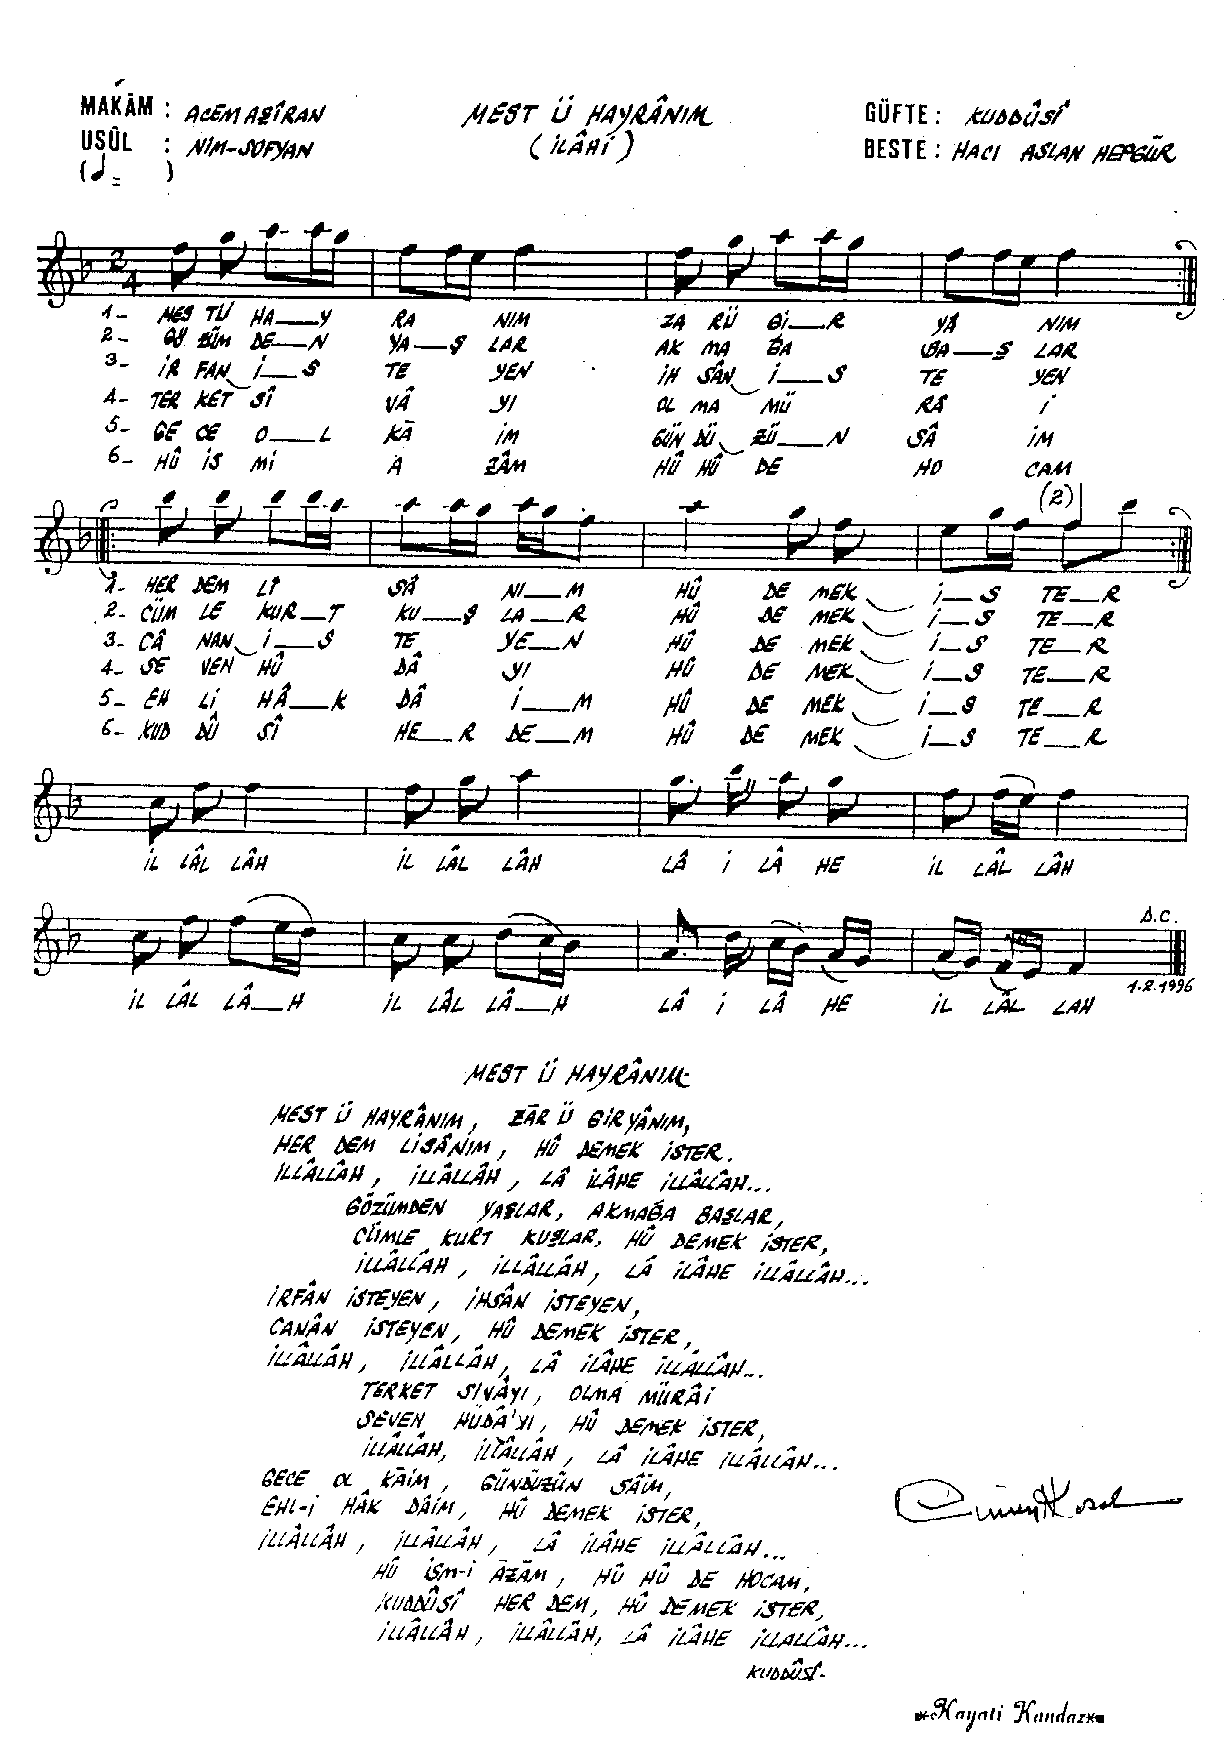 MAKÂM : ACEMAŞÎRAN
MEST Ü HAYRÂNIM
GÜFTE : KUDDÛSÎ
USÛL : NİM-SOFYAN
(İLÂHİ)
BESTE : HACI ASLAN HEPGÜR
( = )
2
4
1- MES TÜ HA___Y RA NIM ZA RÜ Gİ___R YÂ NIM
2- GÖ ZÜM DE___N YA___Ş LAR AK MA ĞA BA___Ş LAR
3- İR FAN İ___S TE YEN İH SÂN İ___S TE YEN
4- TER KET SÎ VÂ YI OL MA MÜ RÂ İ
5- GE CE O___L KÂ İM GÜN DÜ ZÜ___N SÂ İM
6- HÛ İS Mİ A ZÂM HÛ HÛ DE HO CAM
(2)
1- HER DEM Lİ SÂ NI___M HÛ DE MEK İ___S TE___R
2- CÜM LE KUR___T KU___Ş LA___R HÛ DE MEK İ___S TE___R
3- CÂ NAN İ___S TE YE___N HÛ DE MEK İ___S TE___R
4- SE VEN HÛ DÂ YI HÛ DE MEK İ___S TE___R
5- EH Lİ HÂ___K DÂ İ___M HÛ DE MEK İ___S TE___R
6- KUD DÛ SÎ HE___R DE___M HÛ DE MEK İ___S TE___R
İL LÂL LÂH İL LÂL LÂH LÂ İ LÂ HE İL LÂL LÂH
D.C.
1.2.1996
İL LÂL LÂ___H İL LÂL LÂ___H LÂ İ LÂ HE İL LÂL LAH
MEST Ü HAYRÂNIM
MEST Ü HAYRÂNIM, ZÂR Ü GİRYÂNIM,
HER DEM LİSÂNIM, HÛ DEMEK İSTER.
İLLÂLLÂH, İLLÂLLÂH, LÂ İLÂHE İLLÂLLÂH...
GÖZÜMDEN YAŞLAR, AKMAĞA BAŞLAR,
CÜMLE KURT KUŞLAR, HÛ DEMEK İSTER,
İLLÂLLÂH, İLLÂLLÂH, LÂ İLÂHE İLLÂLLÂH...
İRFÂN İSTEYEN, İHSÂN İSTEYEN,
CANÂN İSTEYEN, HÛ DEMEK İSTER,
İLLÂLLÂH, İLLÂLLÂH, LÂ İLÂHE İLLÂLLÂH...
TERKET SİVÂYI, OLMA MÜRÂİ
SEVEN HÜDÂ'YI, HÛ DEMEK İSTER,
İLLÂLLÂH, İLLÂLLÂH, LÂ İLÂHE İLLÂLLÂH...
GECE OL KÂİM, GÜNDÜZÜN SÂİM,
EHL-İ HÂK DÂİM, HÛ DEMEK İSTER,
İLLÂLLÂH, İLLÂLLÂH, LÂ İLÂHE İLLÂLLÂH...
HÛ İSM-İ ÂZÂM, HÛ HÛ DE HOCAM,
KUDDÛSÎ HER DEM, HÛ DEMEK İSTER,
İLLÂLLÂH, İLLÂLLÂH, LÂ İLÂHE İLLALLÂH...
KUDDÛSÎ-
Hayati Kandaz